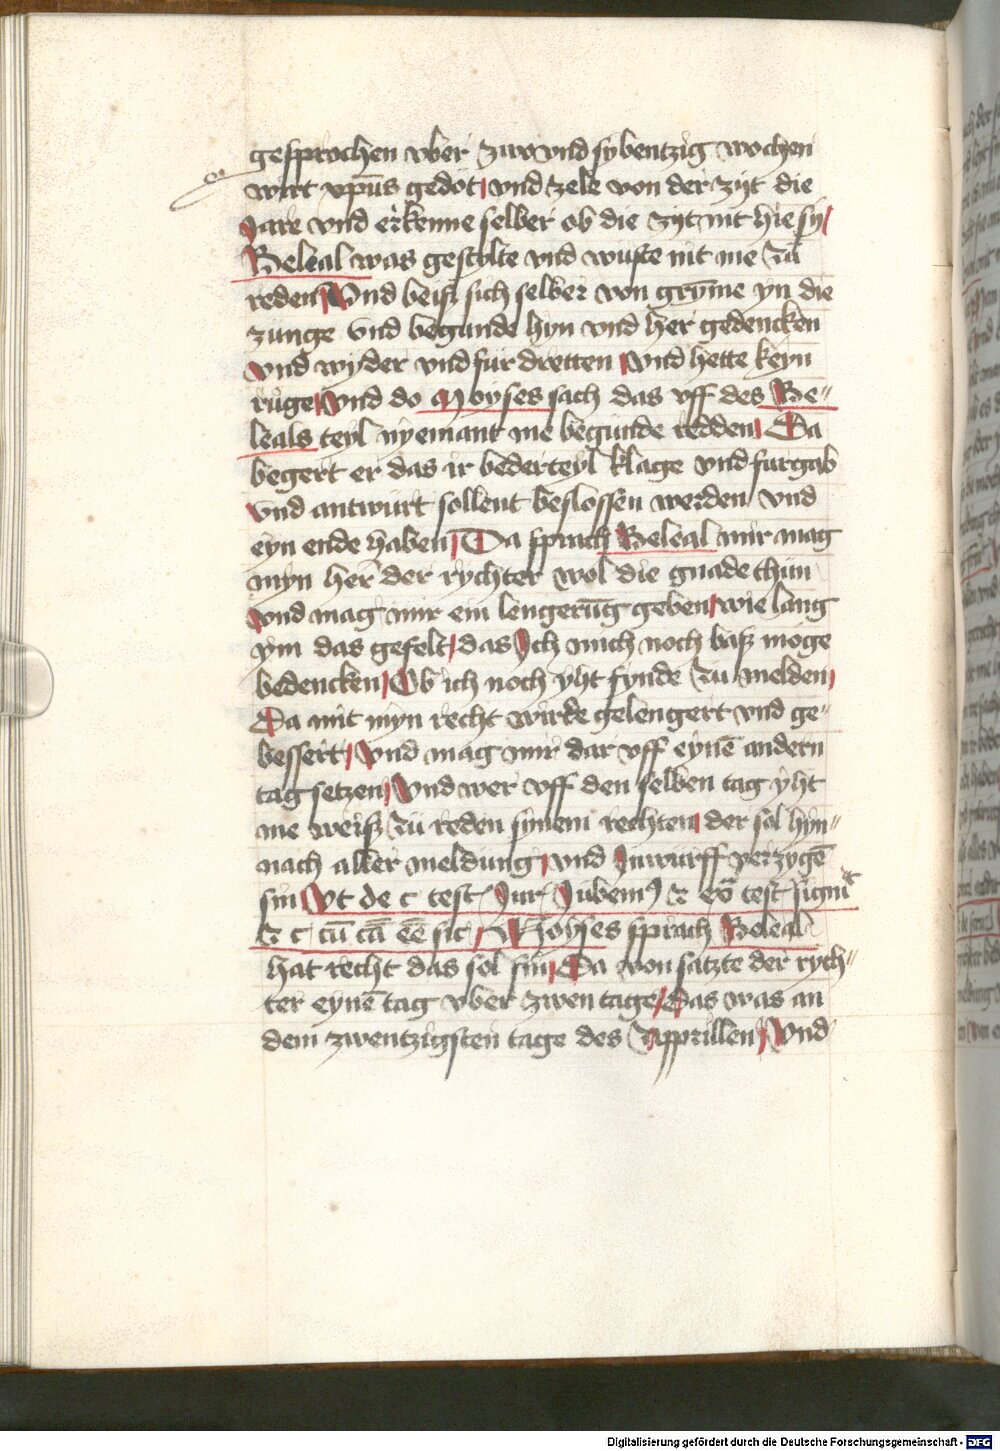 gesprochen vber zwo vnd sybentzig wochen
wirt xp̄us gedöt / vnd zele von der zyt die
Jare vnd erkenne selber ob die zyt nit hie sy /
Beleal was gestolte vnd wuste nit me zu
reden / Vnd beiß sich selber von gry̅me yn die
zunge Vnd begunde hyn vnd her gedencken
vnd wyder vnd fur dretten / vnd hette keyn
ruge / Vnd do Moyses sach das vff des Be-
leals teyl nyemant me begunde redden / Da
begert er das ir bederteyl klage vnd furgab
vnd antwurt sollent beslossen werden vnd
eyn ende haben / Da sprach Beleal mir mag
myn her der rychter wol die gnade thun
vnd mag mir ein lengeru̅g geben / wie lang
ym das gefelt / das Jch mich noch baß moge
bedencken / Ob ich noch yht fynde zu melden /
Da mit myn recht wirde gelengert vnd ge-
bessert / Vnd mag mir dar vff eyne̅ andern
tag setzen / Vnd wer vff den selben tag yht
me weiß zu reden synem rechten / der sol hyn-
nach aller meldung / vnd Jnwurff verzyge̅
sin Vt de c test Jur Jubem⁹ &
& c / cu̅ ca̅ ee̅ sic / Moyses sprach Beleal
hat recht das sol sin / Da von satzte der rych-
ter eyne̅ tag vber zwen tage / Das was an
dem zwentzigsten tage des Apprillen / Vnd
Digitalisierung gefördert durch die Deutsche Forschungsgemeinschaft - DFG